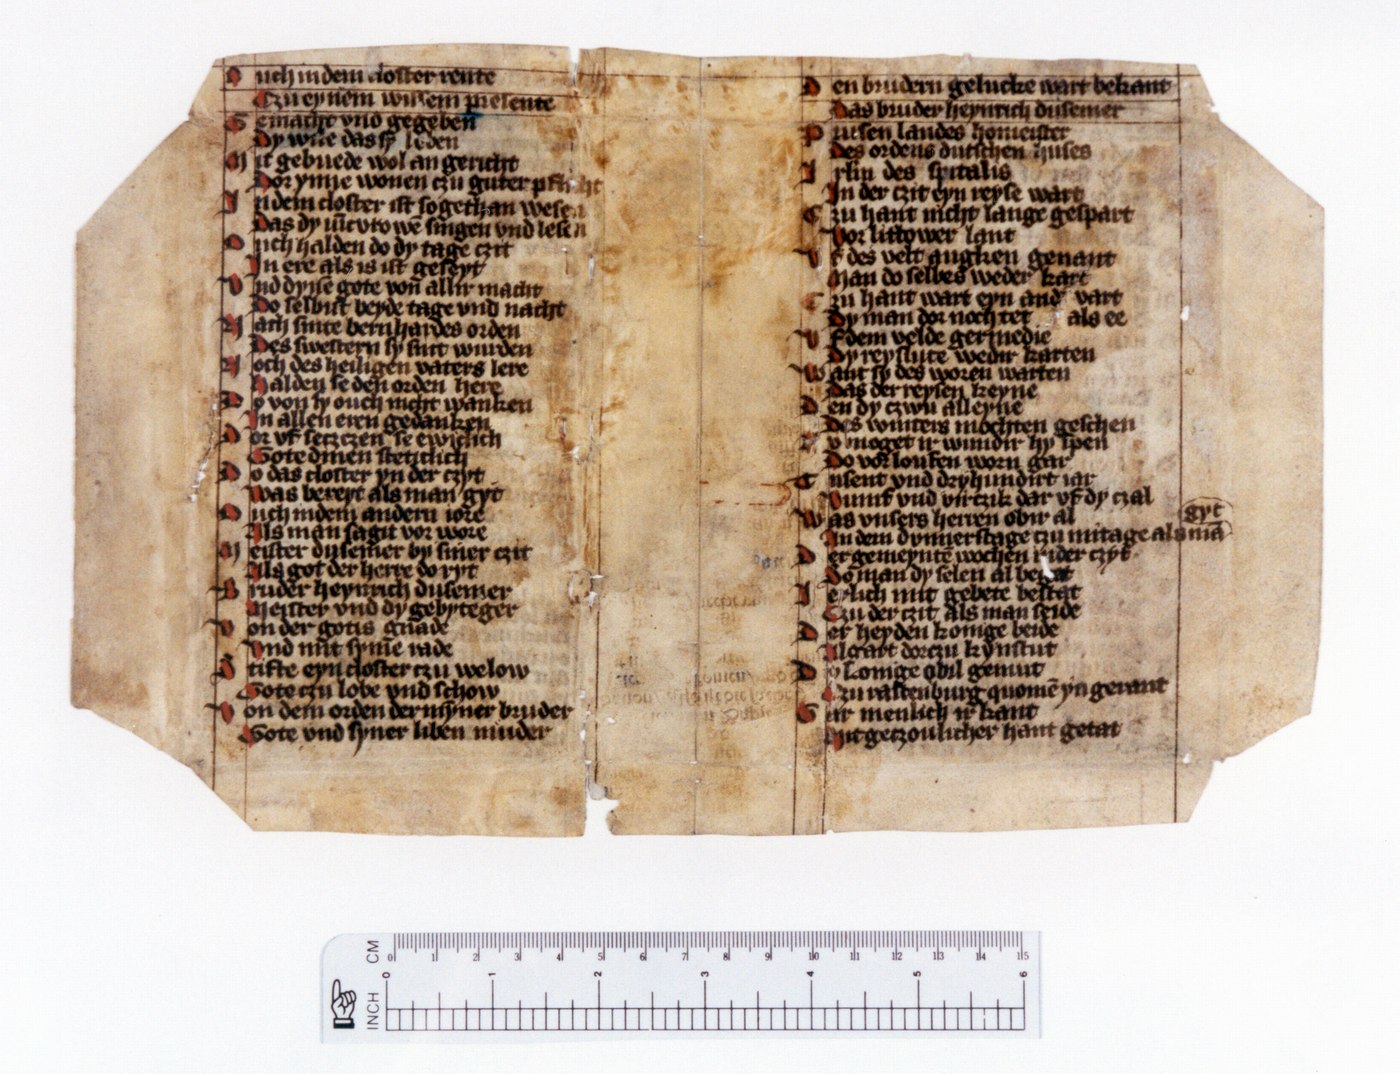 O uch in dem closter rente
Czu eynem wissem presente
G emacht vnd gegeben
Dy wile das sy leben
M it gebuede wol an gericht
Dor ynne wonen czu guter pflicht
I n dem closter ist so gethan wesen
Das dy iūcvrowē singen vnd lesen
O uch halden do dy tage czit
In ere als is ist geseyt
V nd dyne gote von allir macht
Do selbist beyde tage vnd nacht
N ach sinte bernhardes orden
Des swestern sy sint wurden
N och des heiligen vaters lere
Halden se den orden here
D o von sy ouch nicht wanken
In allen eren gedanken
D or vf setczen se ewiclich
Gote dinen steticlich
D o das closter yn der czyt
Was bereyt als man gyt
O uch in dem andern iore
Als man sagit vor wore
M eister dusemer by siner czit
Als got der herre do ryt
B ruder heynrich dusemer
Meister vnd dy gebyteger
V on der gotis gnade
Vnd mit syme rade
S tifte eyn closter czu welow
Gote czu lobe vnd schow
V on dem orden der myner bruder
Gote vnd syner liben muder
D en brudern gelucke wart bekant
Das bruder heynrich dusemer
P rusen landes homeister
Des ordens dutschen huses
I rlin des spitalis
In der czit eyn reyse wart
C zu hant nicht lange gespart
Vor littower lant
V f des velt augken genant
Man do selbes weder kart
C zu hant wart eyn and' vart
Dy man dor noch tet als ee
V f dem velde germedie
Dy reyslute wedir karten
W ant sy des woren warten
Das der reysen keyne
D en dy czwu alleyne
Des winters mochten geschen
N v moget ir wundir hy spen
Do vor loufen worn gar
T usent vnd dryhundirt iar
Vumf vnd virczik dar vf dy czal
W as vnsers herren obir al
gyt
In dem dynnerstage czu mitage als mā
D er gemeynte wochen in der czyt
Do man dy selen al beget
I erlich mit gebete bestat
Czu der czit als man seide
D er heyden konige beide
Algart dorczu kynstut
D o konige obil gemut
Czu rastenburg quomē yn gerant
G ar menlich ir hant
Mit getzoulicher hant getat